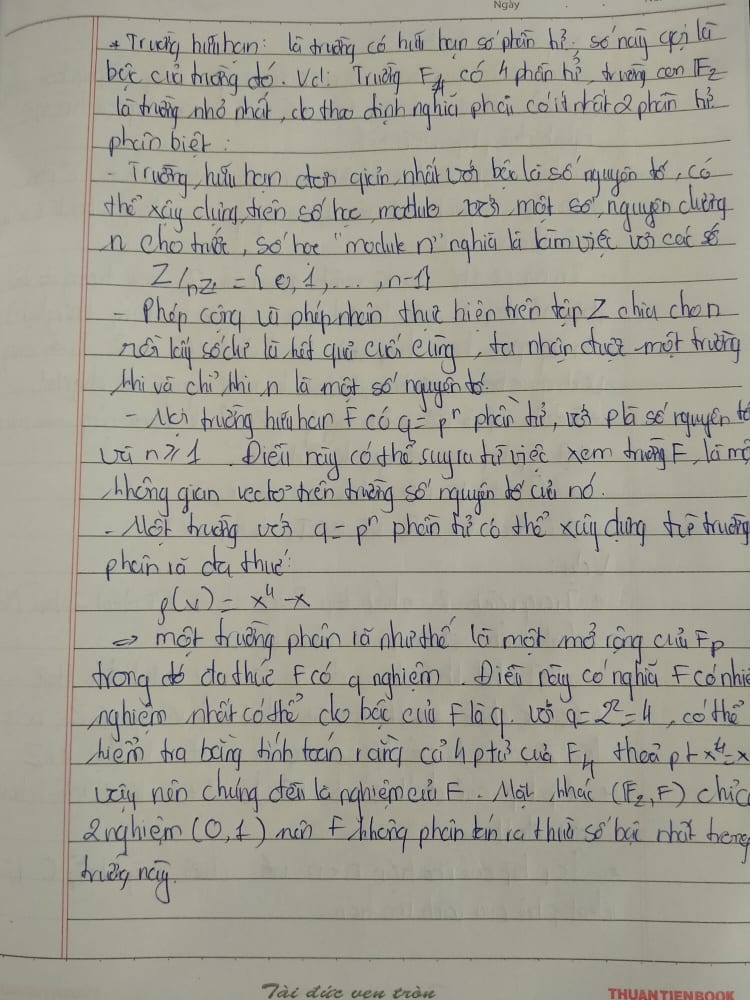 Ngày
* Trường hữu hạn: là trường có hữu hạn số phần tử, số này gọi là
bậc của trường đó. Vd: Trường F₄ có 4 phần tử, trường con F₂
là trường nhỏ nhất, do theo định nghĩa phải có ít nhất 2 phần tử
phân biệt:
- Trường hữu hạn đơn giản nhất với bậc là số nguyên tố, có
thể xây dựng trên số học modulo với một số nguyên dương
n cho trước, số học "module n" nghĩa là làm việc với các số
Z/nZ = {0, 1, ..., n-1}
- Phép cộng và phép nhân thực hiện trên tập Z chia cho n
rồi lấy số dư là kết quả cuối cùng, ta nhận được một trường
khi và chỉ khi n là một số nguyên tố.
- Mọi trường hữu hạn F có q = pⁿ phần tử, với p là số nguyên tố
và n ≥ 1. Điều này có thể suy ra từ việc xem trường F, là mộ
không gian vectơ trên trường số nguyên tố của nó.
- Một trường với q = pⁿ phần tử có thể xây dựng từ trường
phân rã đa thức:
f(x) = x⁴ - x
⇒ một trường phân rã như thế là một mở rộng của Fp
trong đó đa thức F có q nghiệm. Điều này có nghĩa F có nhiề
nghiệm nhất có thể do bậc của F là q. với q = 2² = 4, có thể
kiểm tra bằng tính toán rằng cả 4 ptử của F₄ thoả pt x⁴ = x
vậy nên chúng đều là nghiệm của F. Mặt khác (F₂, F) chỉ c
2 nghiệm (0, 1) nên F không phân tích ra thừa số bậc nhất trong
trường này.
Tài đức vẹn tròn
THUANTIENBOOK